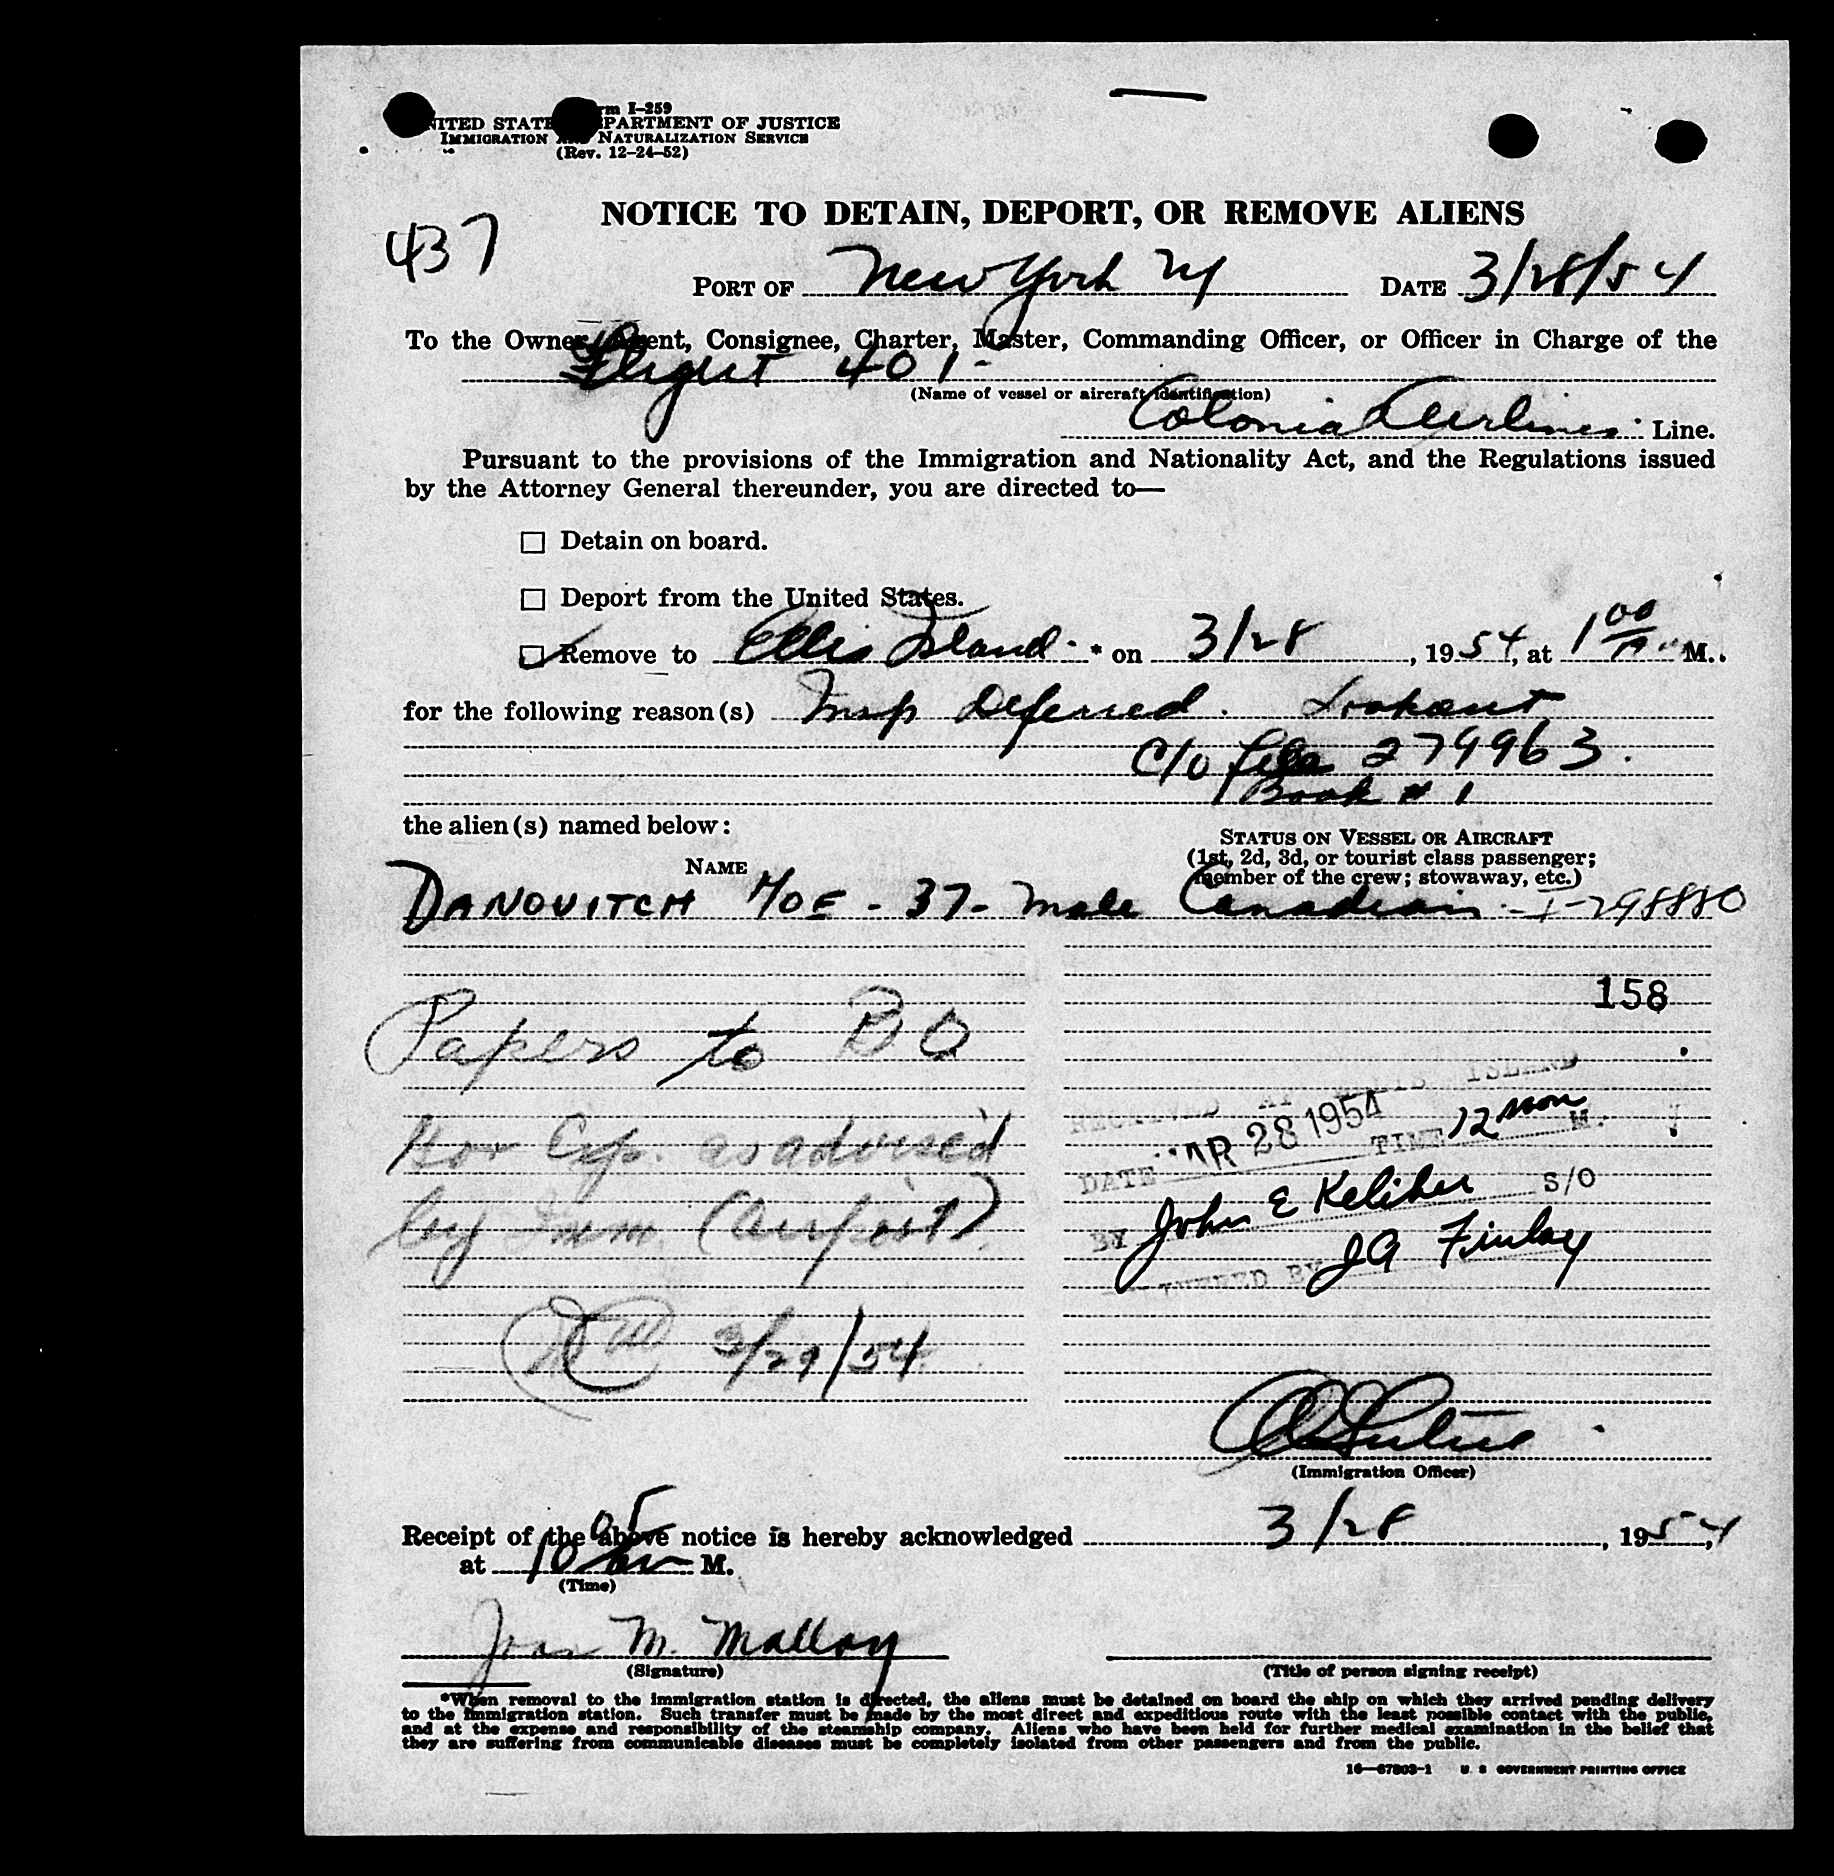 Form I-259
UNITED STATES DEPARTMENT OF JUSTICE
IMMIGRATION AND NATURALIZATION SERVICE
(Rev. 12-24-52)
437
NOTICE TO DETAIN, DEPORT, OR REMOVE ALIENS
PORT OF New York NY DATE 3/28/54
To the Owner, Agent, Consignee, Charter, Master, Commanding Officer, or Officer in Charge of the
Flight 401-
(Name of vessel or aircraft identification)
Colonial Airlines Line.
Pursuant to the provisions of the Immigration and Nationality Act, and the Regulations issued
by the Attorney General thereunder, you are directed to—
☐ Detain on board.
☐ Deport from the United States.
☑ Remove to Ellis Island * on 3/28, 1954, at 1 00 P. M..
for the following reason(s) Insp Deferred. Lookout
C/O file 279963.
Book # 1
the alien(s) named below:
NAME
STATUS ON VESSEL OR AIRCRAFT
(1st, 2d, 3d, or tourist class passenger;
member of the crew; stowaway, etc.)
DANOVITCH MOE - 37 - male Canadian - I-298880
158
Papers to BO
RECEIVED AT ELLIS ISLAND
DATE MAR 28 1954 TIME 12 noon M.
for Exp. as advised
by Imm. (Airport)
BY John E Keliher S/O
JA Finlay
3/29/54
(Immigration Officer)
Receipt of the above notice is hereby acknowledged 3/28, 1954,
at 10 05 M.
(Time)
Joan M. Malloy
(Signature)
(Title of person signing receipt)
*When removal to the immigration station is directed, the aliens must be detained on board the ship on which they arrived pending delivery
to the immigration station. Such transfer must be made by the most direct and expeditious route with the least possible contact with the public,
and at the expense and responsibility of the steamship company. Aliens who have been held for further medical examination in the belief that
they are suffering from communicable diseases must be completely isolated from other passengers and from the public.
16—67803-1 U. S. GOVERNMENT PRINTING OFFICE